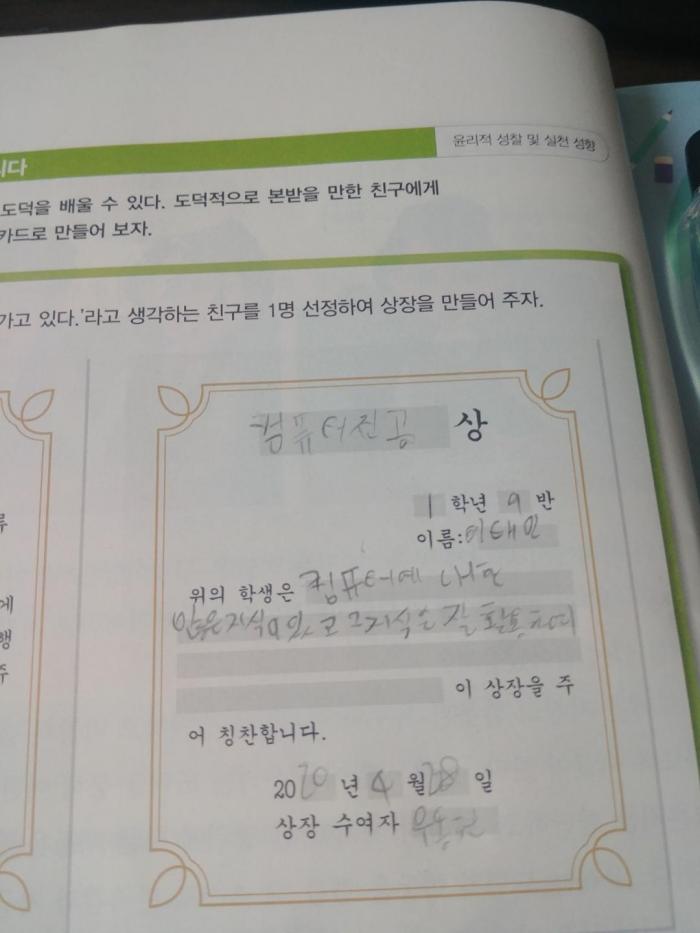 니다
윤리적 성찰 및 실천 성향
도덕을 배울 수 있다. 도덕적으로 본받을 만한 친구에게
카드로 만들어 보자.
가고 있다.'라고 생각하는 친구를 1명 선정하여 상장을 만들어 주자.
컴퓨터전공 상
1 학년 9 반
이름:이태인
위의 학생은 컴퓨터에 대한
많은지식이있고 그지식을 잘 활용하여
이 상장을 주
어 칭찬합니다.
2020 년 4 월 28 일
상장 수여자
류
게
행
주